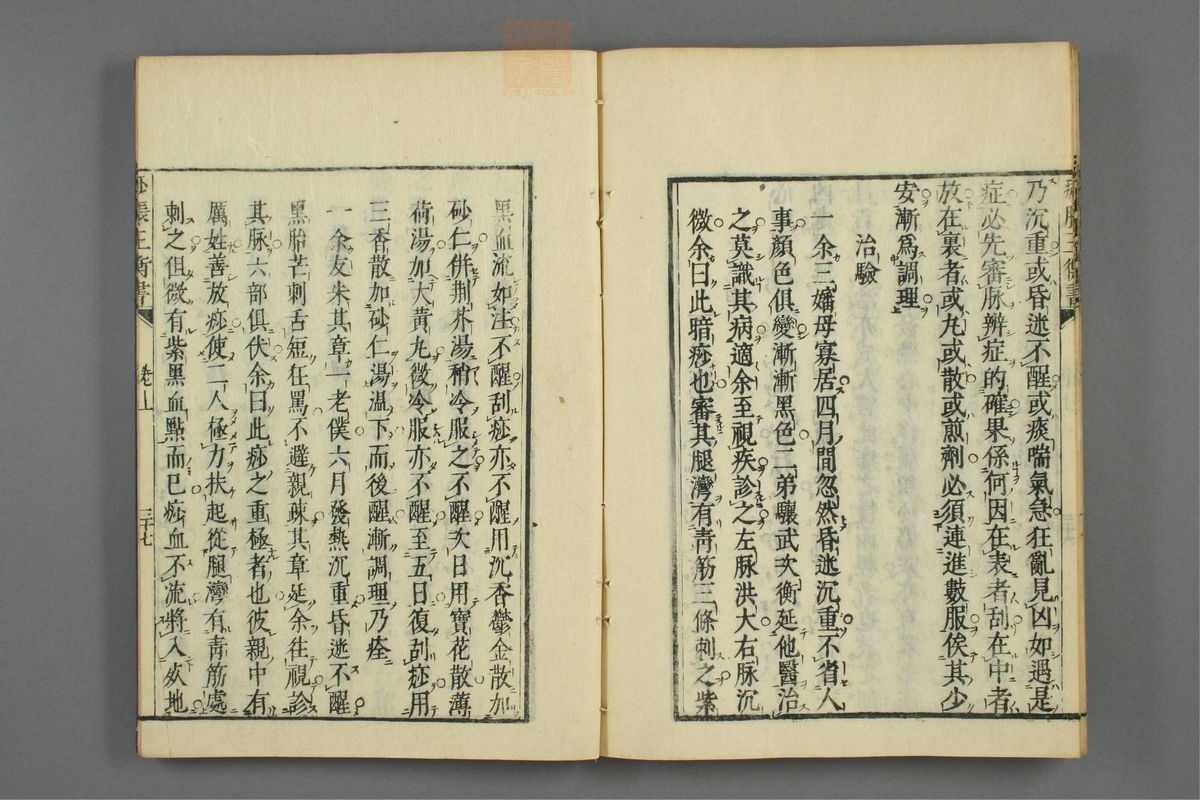 乃沉重或昏迷不醒或痰喘氣急狂亂見凶如遇是
症必先審脉辨症的確果係何因在表者刮在中者
放在裏者或丸或散或煎劑必須連進數服俟其少
安漸爲調理
治驗
一余三嬸母寡居四月間忽然昏迷沉重不省人
事顔色俱變漸漸黑色二弟驤武次衡延他醫治
之莫識其病適余至視疾診之左脉洪大右脉沉
微余曰此暗痧也審其腿灣有靑筋三條刺之紫
黑血流如注不醒刮痧亦不醒用沉香鬱金散加
砂仁併荆芥湯稍冷服之不醒次日用寶花散薄
荷湯加大黃丸微冷服亦不醒至五日復刮痧用
三香散加砂仁湯温下而後醒漸調理乃痊
一余友朱其章一老僕六月發熱沉重昏迷不醒
黑胎芒刺舌短狂罵不避親疎其章延余往視診
其脉六部俱伏余曰此痧之重極者也彼親中有
厲姓善放痧使二人極力扶起從腿灣有靑筋處
刺之但微有紫黑血點而已痧血不流將入死地
痧脹玉衡書
卷上
三十七
zysj.com.cn